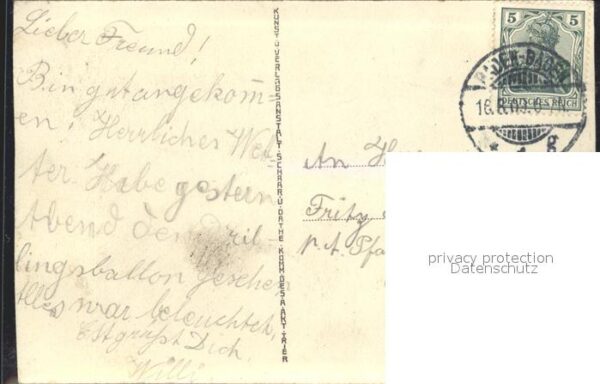 Lieber Freund!
Bin gut angekom=
men! Herrliches Wet-
ter. Habe gestern
Abend den Dril-
lingsballon gesehen
Alles war beleuchtet.
Es grüßt Dich
Willi
KUNST U. VERLAGSANSTALT SCHAAR U. DATHE KOMM. GES. A. AKT. TRIER
5 5
DEUTSCHES REICH
BADEN-BADEN
16.8.
An
Fritz
privacy protection
Datenschutz